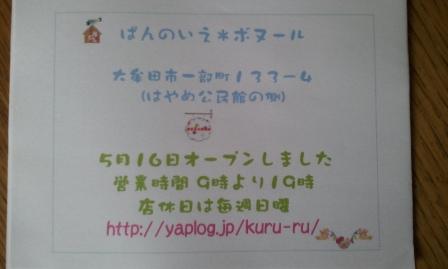 ぱんのいえ＊ボヌール
大牟田市一部町133-4
(はやめ公民館の側)
5月16日オープンしました
営業時間 9時より19時
店休日は毎週日曜
http://yaplog.jp/kuru-ru/